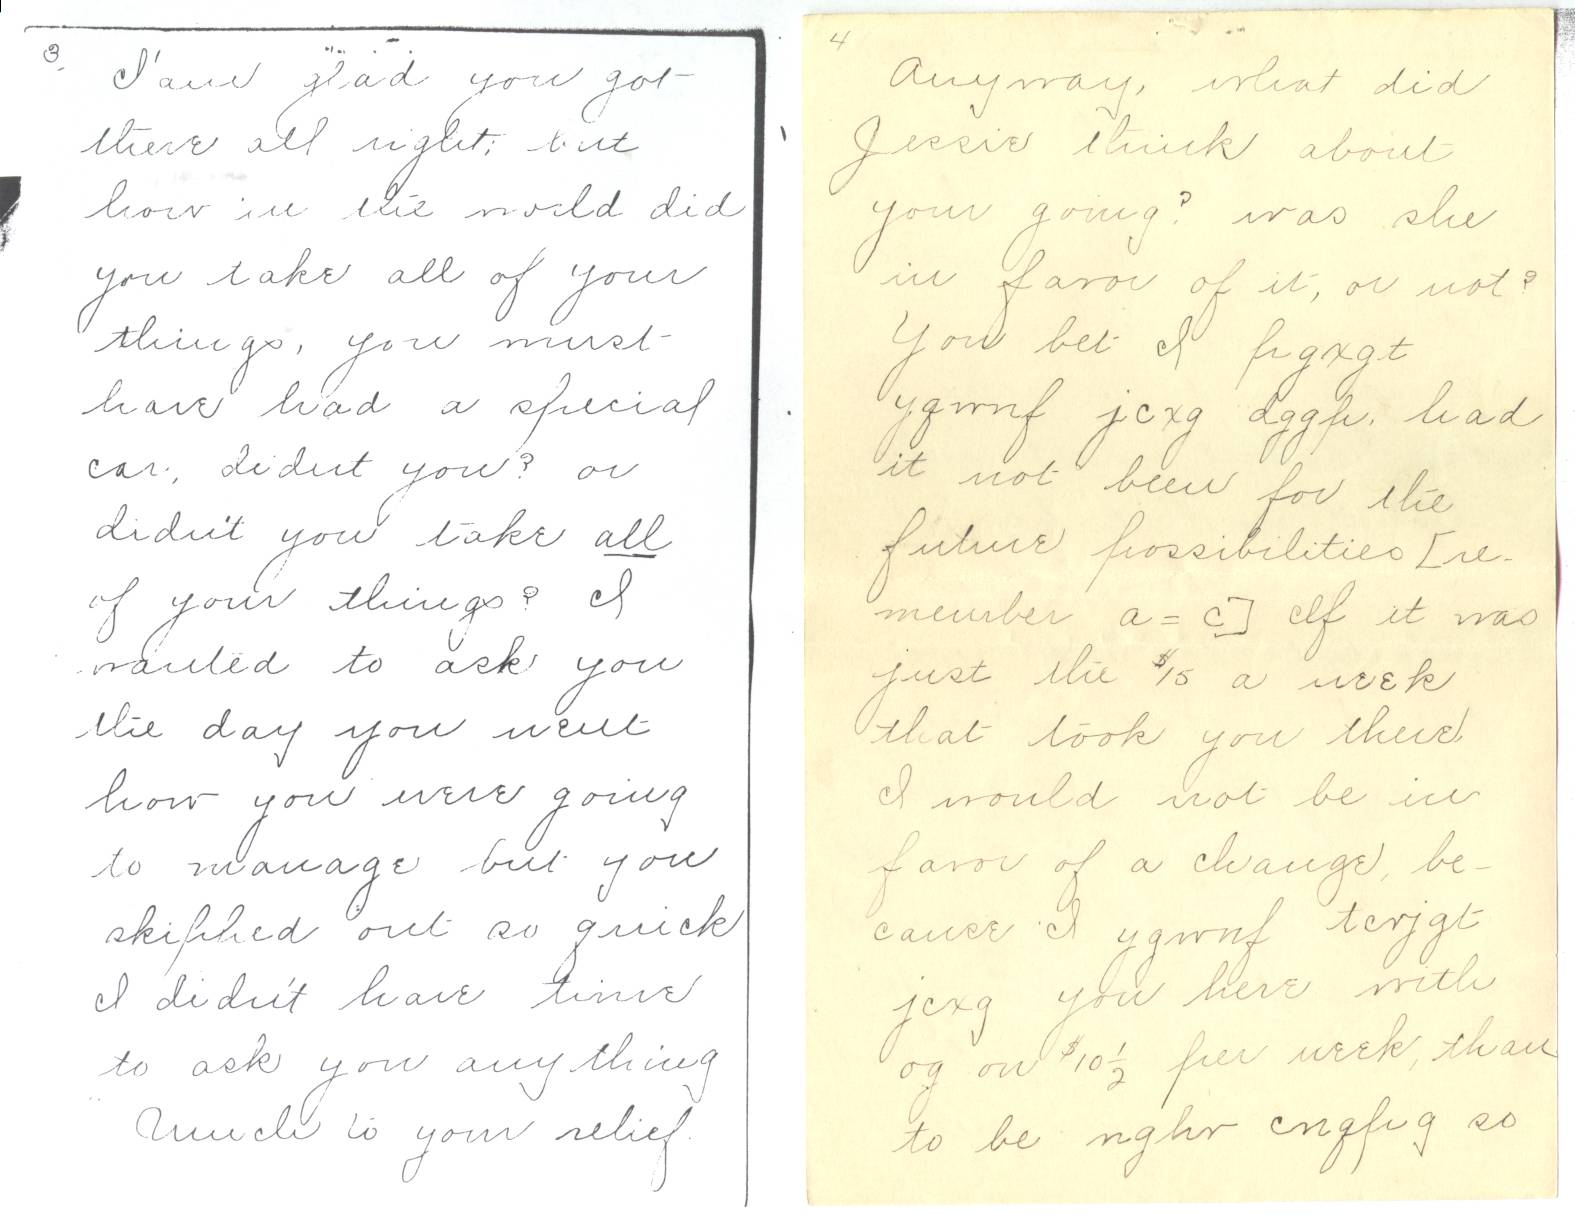 3.
I'am glad you got
there all right; but
how in the world did
you take all of your
things, you must
have had a special
car, didn't you? or
didn't you take all
of your things? I
wanted to ask you
the day you went
how you were going
to manage but you
skipped out so quick
I didn't have time
to ask you anything
Much to your relief.
4
Anyway, what did
Jessie think about
your going? was she
in favor of it, or not?
You bet I pgxgt
yqwnf jcxg dggp. had
it not been for the
future possibilities [re-
member a = c] If it was
just the $15 a week
that took you there
I would not be in
favor of a change, be-
cause I yqwnf tcvjgt
jcxg you here with
og on $10 1/2 per week, than
to be nghv cnqpg so